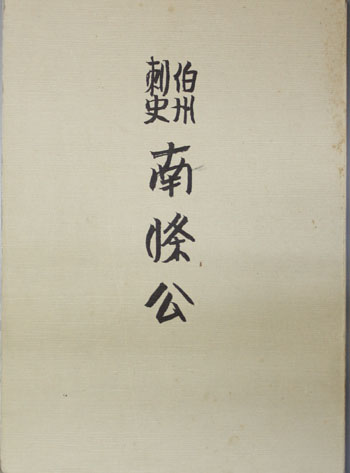 伯州
刺史
南條公